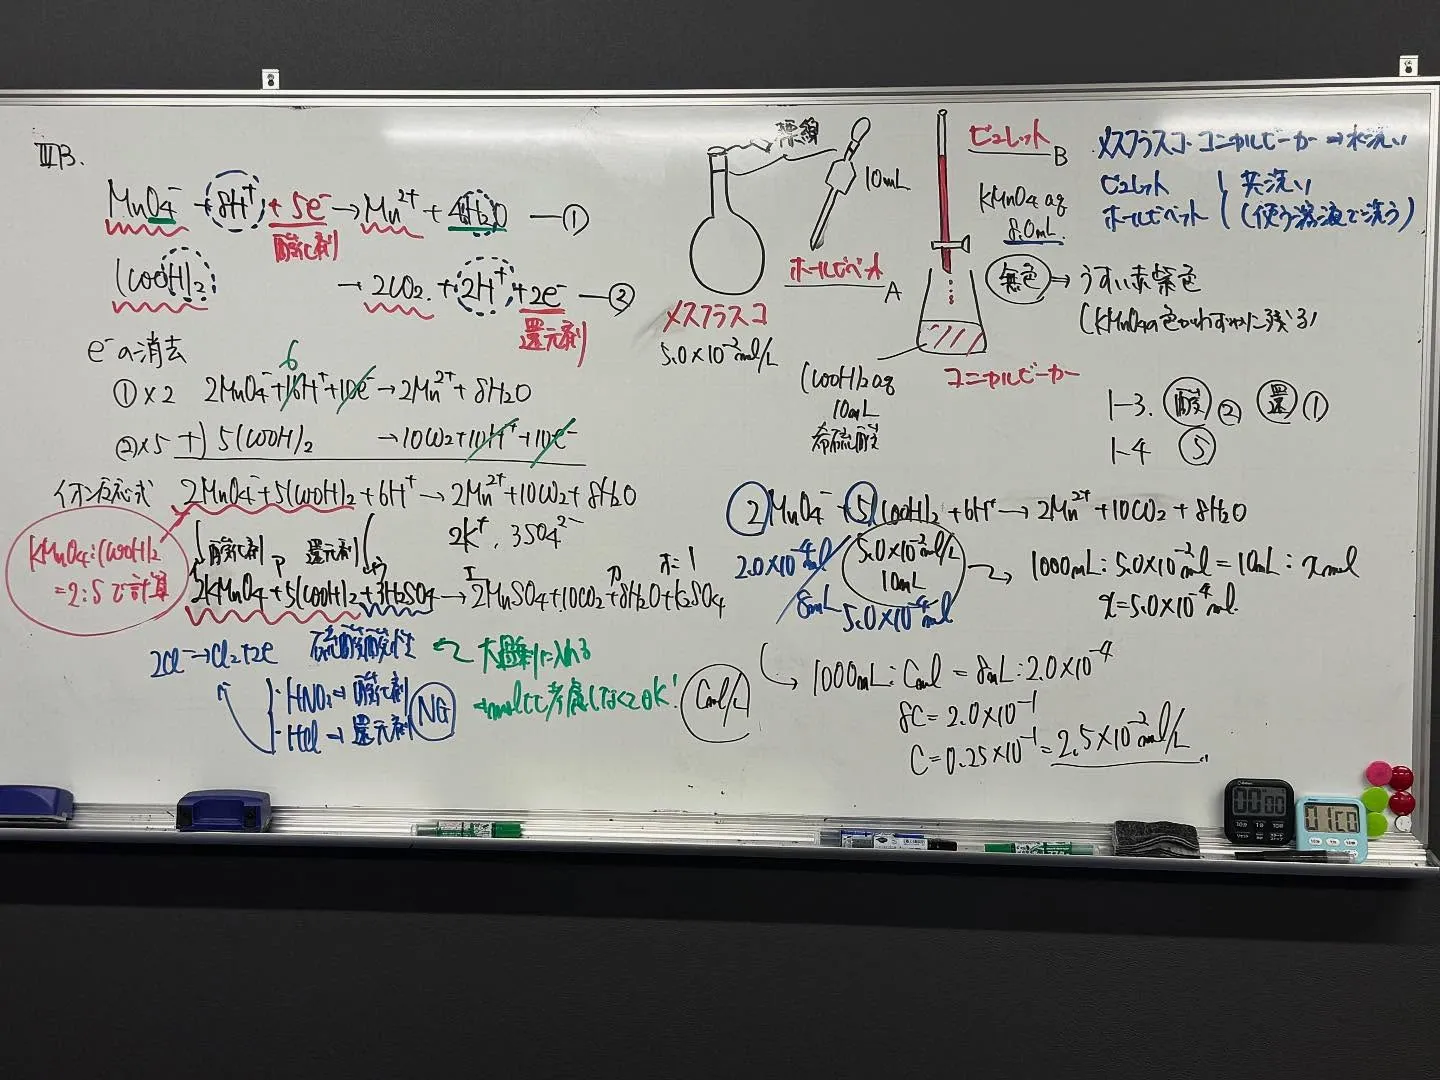 ⅢB.
MnO4⁻ + 8H⁺ + 5e⁻ → Mn²⁺ + 4H2O ―①
酸化剤
(COOH)2 → 2CO2 + 2H⁺ + 2e⁻ ―②
還元剤
e⁻の消去
6
①×2 2MnO4⁻ + 16H⁺ + 10e⁻ → 2Mn²⁺ + 8H2O
②×5 +) 5(COOH)2 → 10CO2 + 10H⁺ + 10e⁻
イオン反応式 2MnO4⁻ + 5(COOH)2 + 6H⁺ → 2Mn²⁺ + 10CO2 + 8H2O
酸化剤 還元剤 2K⁺, 3SO4²⁻
KMnO4:(COOH)2
=2:5で計算
2KMnO4 + 5(COOH)2 + 3H2SO4 → 2MnSO4 + 10CO2 + 8H2O + K2SO4
2Cl⁻ → Cl2 + 2e 硫酸酸性 ← 大過剰に入れる
・HNO3 → 酸化剤
・HCl → 還元剤
NG
→molとか考慮しなくてOK!
標線
10mL
ホールピペット
A
メスフラスコ
5.0×10⁻² mol/L
ビュレット
B
KMnO4 aq
8.0mL
無色 → うすい赤紫色
(KMnO4の色がわずかに残る)
(COOH)2 aq
10mL
希硫酸
コニカルビーカー
メスフラスコ・コニカルビーカー → 水洗い
ビュレット
ホールピペット
共洗い
(使う溶液で洗う)
1-3. 酸 ② 還 ①
1-4 ⑤
2MnO4⁻ + 5(COOH)2 + 6H⁺ → 2Mn²⁺ + 10CO2 + 8H2O
2.0×10⁻⁴mol
8mL
5.0×10⁻²mol/L
10mL
5.0×10⁻⁴mol
1000mL : 5.0×10⁻²mol = 10mL : x mol
x = 5.0×10⁻⁴mol.
Cmol/L
1000mL : Cmol = 8mL : 2.0×10⁻⁴
8C = 2.0×10⁻¹
C = 0.25×10⁻¹ = 2.5×10⁻² mol/L